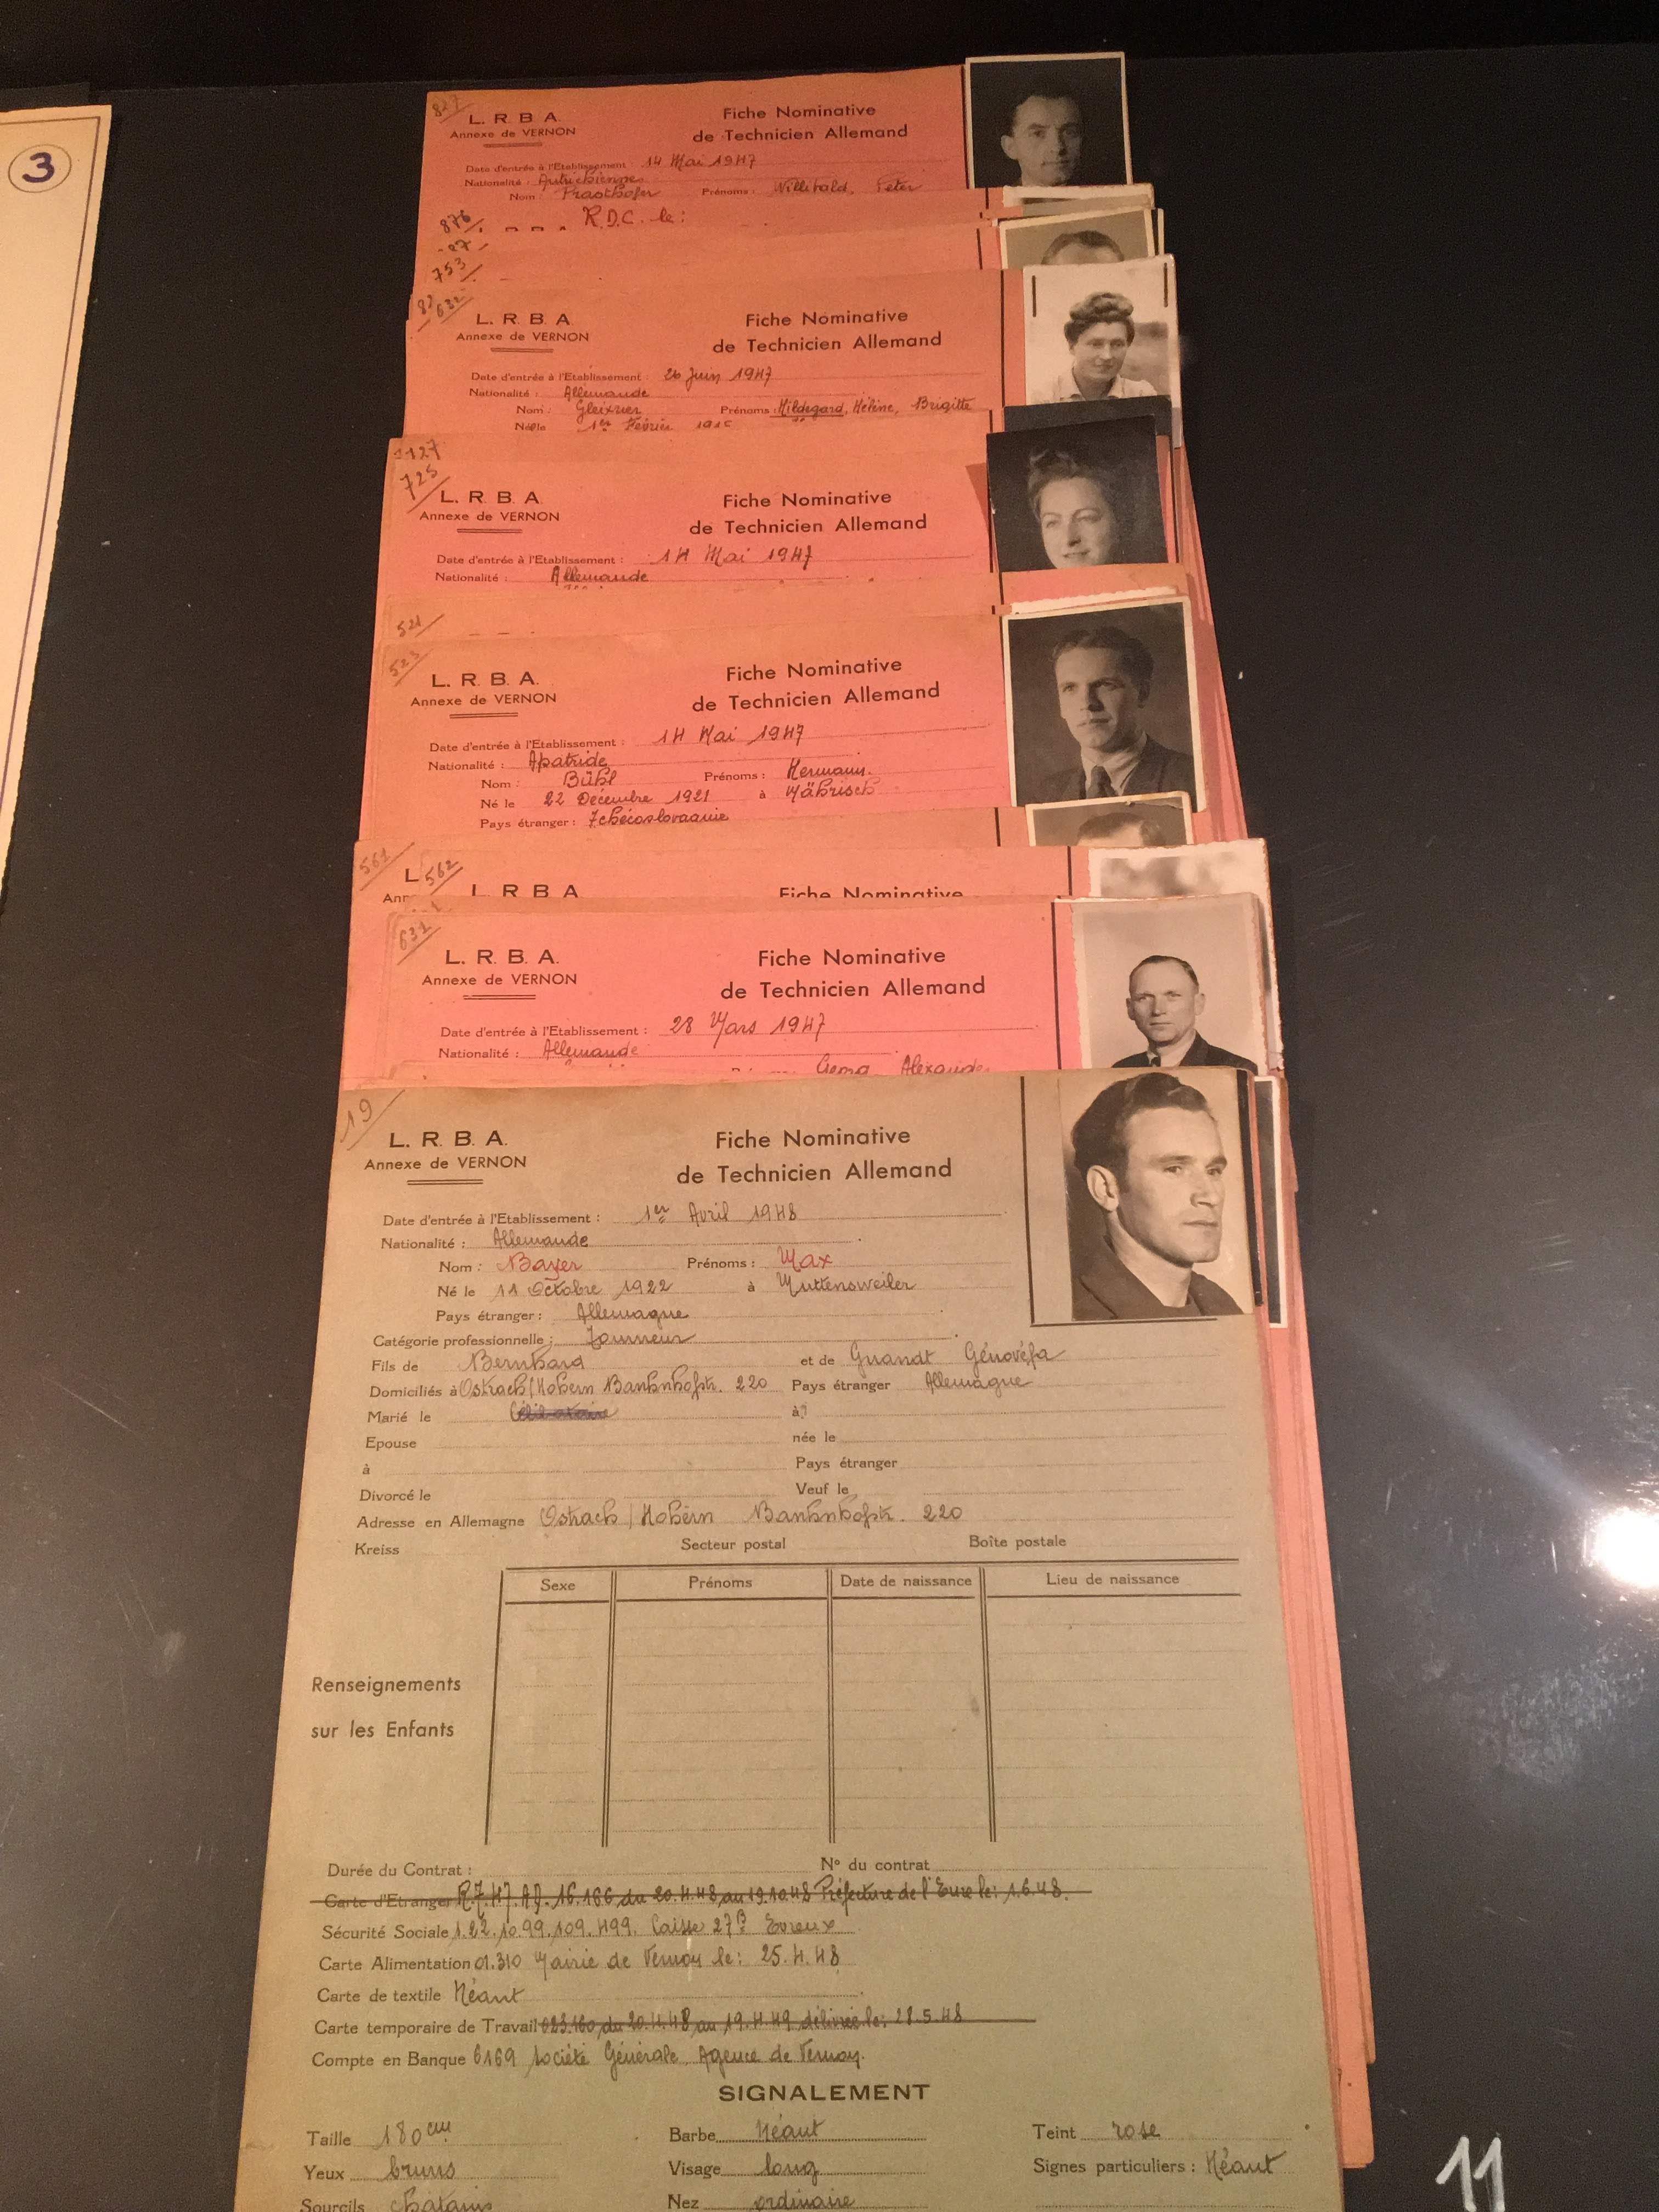 3
827
L. R. B. A.
Annexe de VERNON
Fiche Nominative
de Technicien Allemand
Date d'entrée à l'Etablissement : 14 Mai 1947
Nationalité : Autrichienne
Nom : Prasthofer Prénoms : Willibald, Peter
R.D.C. le :
876
753
632
L. R. B. A.
Annexe de VERNON
Fiche Nominative
de Technicien Allemand
Date d'entrée à l'Etablissement : 26 Juin 1947
Nationalité : Allemande
Nom : Gleixner Prénoms : Hildegard, Hélène, Brigitte
Né le 1er Février
1127
725
L. R. B. A.
Annexe de VERNON
Fiche Nominative
de Technicien Allemand
Date d'entrée à l'Etablissement : 14 Mai 1947
Nationalité : Allemande
521
523
L. R. B. A.
Annexe de VERNON
Fiche Nominative
de Technicien Allemand
Date d'entrée à l'Etablissement : 14 Mai 1947
Nationalité : Apatride
Nom : Bühl Prénoms : Hermann.
Né le 22 Décembre 1921 à Mährisch
Pays étranger : Tchécoslovaquie
561
562
L. R. B. A
Fiche Nominative
631
L. R. B. A.
Annexe de VERNON
Fiche Nominative
de Technicien Allemand
Date d'entrée à l'Etablissement : 28 Mars 1947
Nationalité : Allemande
Georg Alexander
19
L. R. B. A.
Annexe de VERNON
Fiche Nominative
de Technicien Allemand
Date d'entrée à l'Etablissement : 1er Avril 1948
Nationalité : Allemande
Nom : Bayer Prénoms : Max
Né le 11 Octobre 1922 à Muttensweiler
Pays étranger : Allemagne
Catégorie professionnelle : Tourneur
Fils de Bernhard et de Guandt Génovéfa
Domiciliés à Ostrach/Hohern Banhnhofstr. 220 Pays étranger Allemagne
Marié le Célibataire à
Epouse née le
à Pays étranger
Divorcé le Veuf le
Adresse en Allemagne Ostrach / Hohern Banhnhofstr. 220
Kreiss Secteur postal Boîte postale
Sexe Prénoms Date de naissance Lieu de naissance
Renseignements
sur les Enfants
Durée du Contrat : N° du contrat
Carte d'Etranger R.7.47.AD. 16.166 du 20.4.48 au 19.10.48 Préfecture de l'Eure le: 1.6.48.
Sécurité Sociale 1.22.10.99.109.499. Caisse 27B Evreux
Carte Alimentation 01.310 Mairie de Vernon le: 25.4.48
Carte de textile Néant
Carte temporaire de Travail 023.160 du 20.4.48 au 19.4.49 délivrée le: 28.5.48
Compte en Banque 6169 Société Générale Agence de Vernon.
SIGNALEMENT
Taille 180 cm Barbe Néant Teint rose
Yeux bruns Visage long Signes particuliers : Néant
Sourcils châtains Nez ordinaire
11